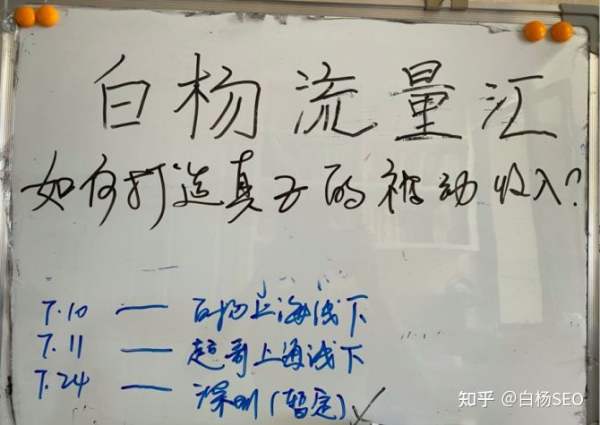 白杨流量汇
如何打造真正的被动收入?
7.10 — 白杨上海线下
7.11 — 超哥上海线下
7.24 — 深圳(暂定)
知乎 @白杨SEO